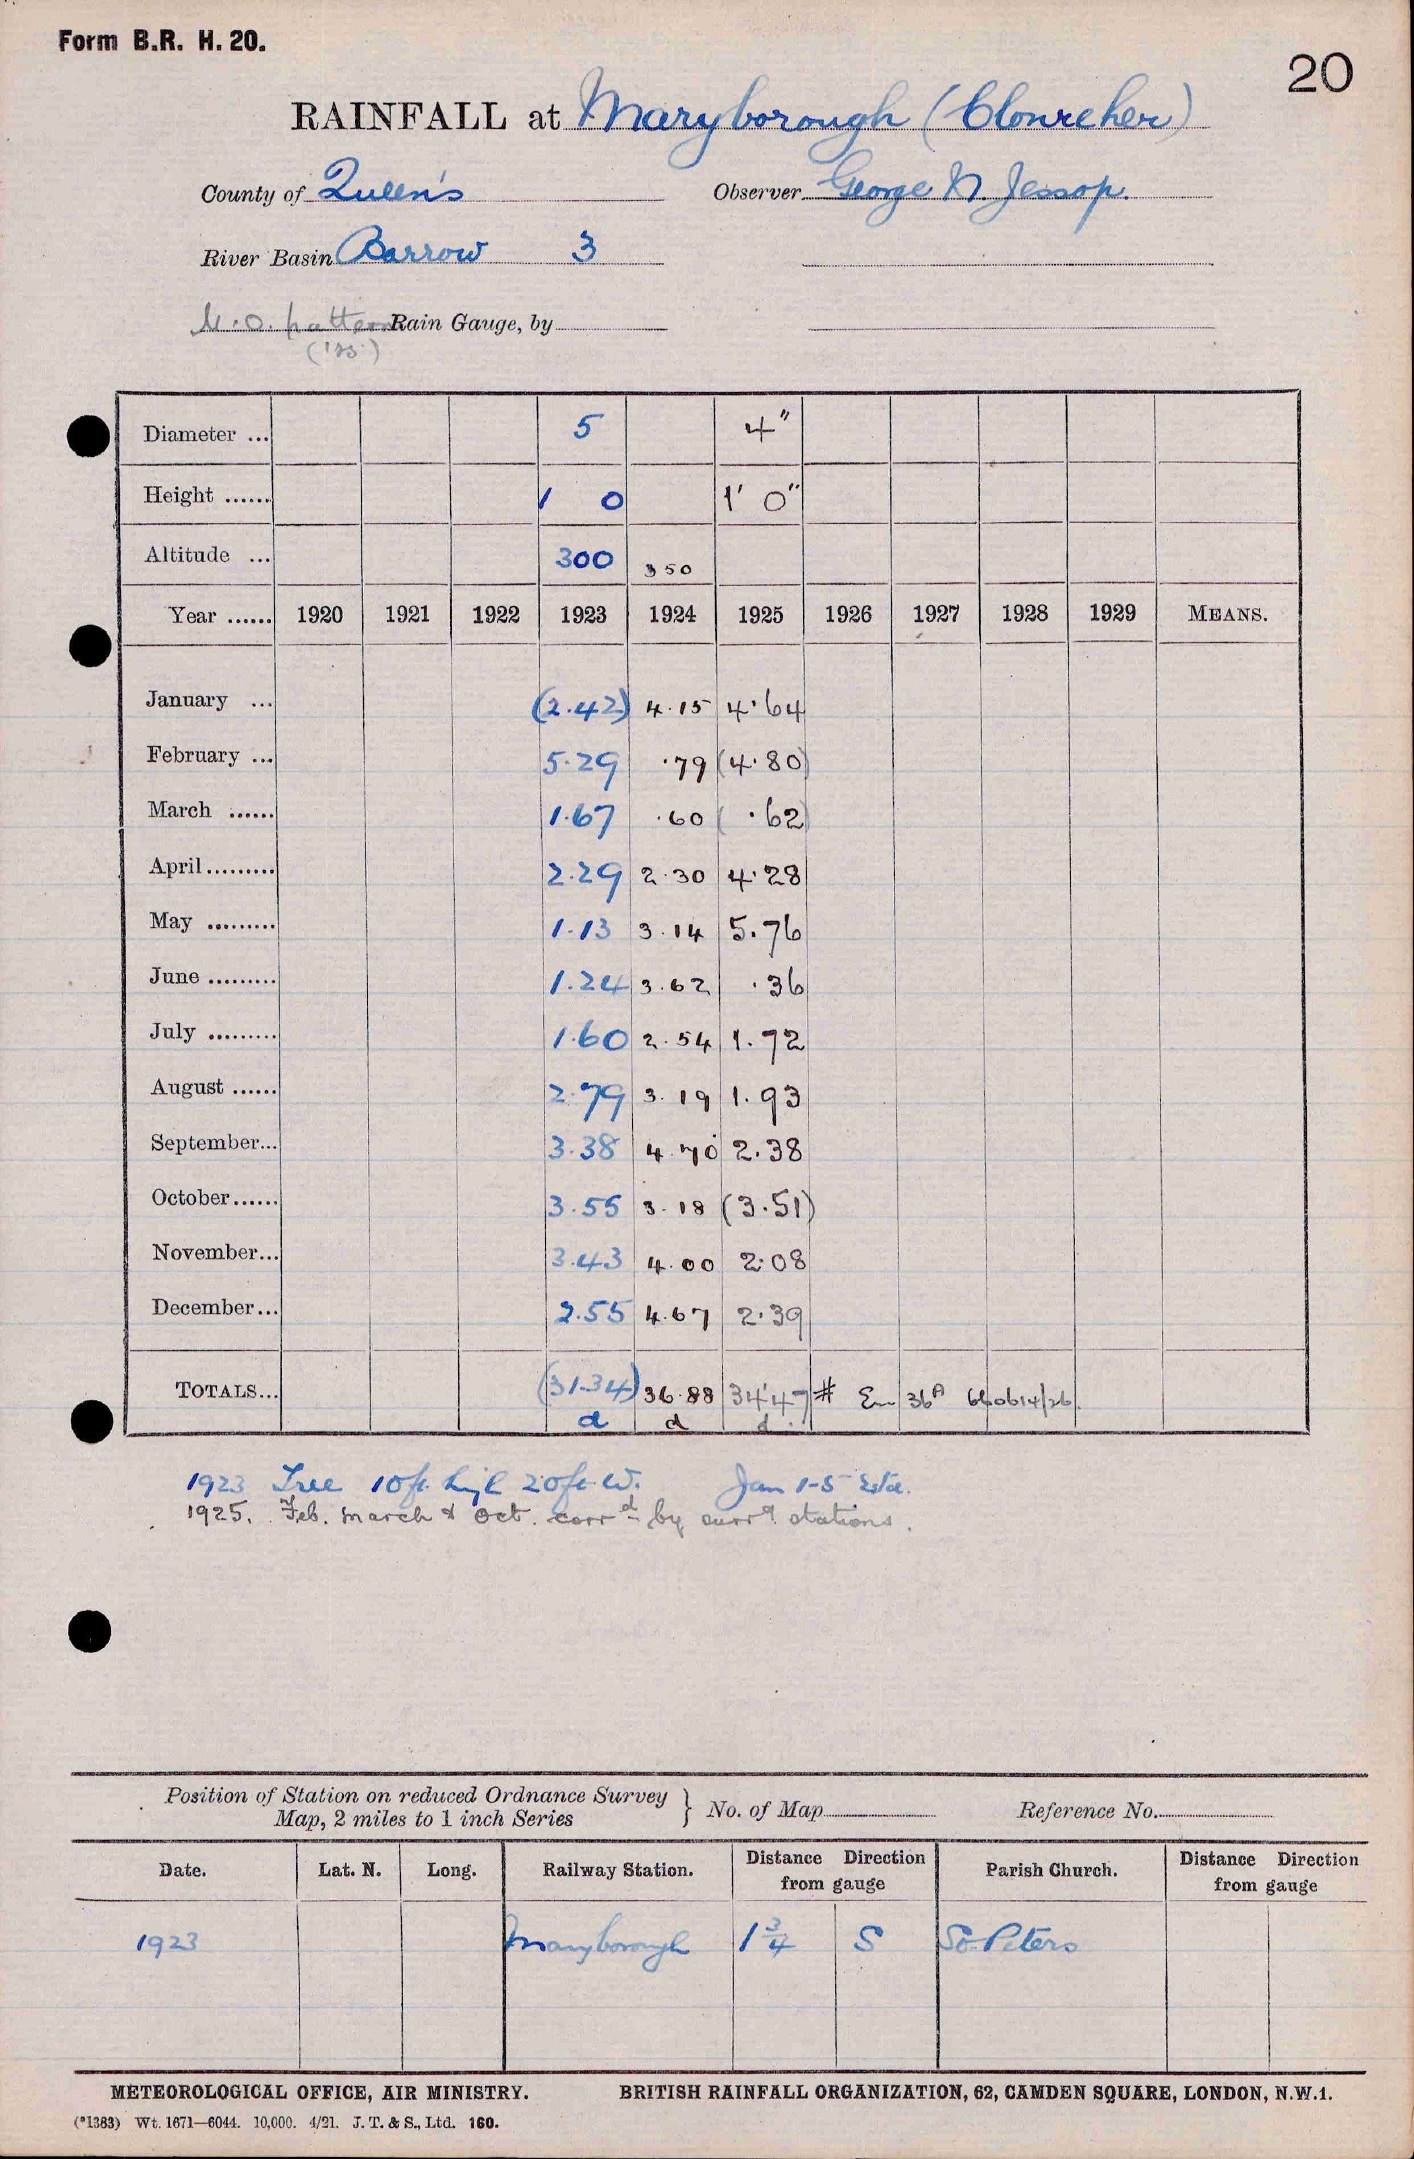 Form B.R. H. 20.
20
RAINFALL at Maryborough (Clonreher)
County of Queen's Observer George N. Jessop.
River Basin Barrow 3
M.O. pattern Rain Gauge, by
('25.)
Diameter ... 5 4"
Height ...... 1 0 1' 0"
Altitude ... 300 350
Year ...... 1920 1921 1922 1923 1924 1925 1926 1927 1928 1929 MEANS.
January ... (2.42) 4.15 4.64
February ... 5.29 .79 (4.80)
March ...... 1.67 .60 ( .62)
April ......... 2.29 2.30 4.28
May ......... 1.13 3.14 5.76
June ......... 1.24 3.62 .36
July ......... 1.60 2.54 1.72
August ...... 2.79 3.19 1.93
September... 3.38 4.70 2.38
October...... 3.55 3.18 (3.51)
November... 3.43 4.00 2.08
December... 2.55 4.67 2.39
TOTALS... (31.34) 36.88 34.47 # 36A
d d d
1923 Tree 10ft high 20ft W. Jan 1-5
1925. Feb. March & Oct. corrd by surrg stations.
Position of Station on reduced Ordnance Survey
Map, 2 miles to 1 inch Series } No. of Map Reference No.
Date. Lat. N. Long. Railway Station. Distance Direction from gauge Parish Church. Distance Direction from gauge
1923 Maryborough 1 3/4 S St. Peters
METEOROLOGICAL OFFICE, AIR MINISTRY. BRITISH RAINFALL ORGANIZATION, 62, CAMDEN SQUARE, LONDON, N.W.1.
(*1383) Wt. 1671—6044. 10,000. 4/21. J. T. & S., Ltd. 160.